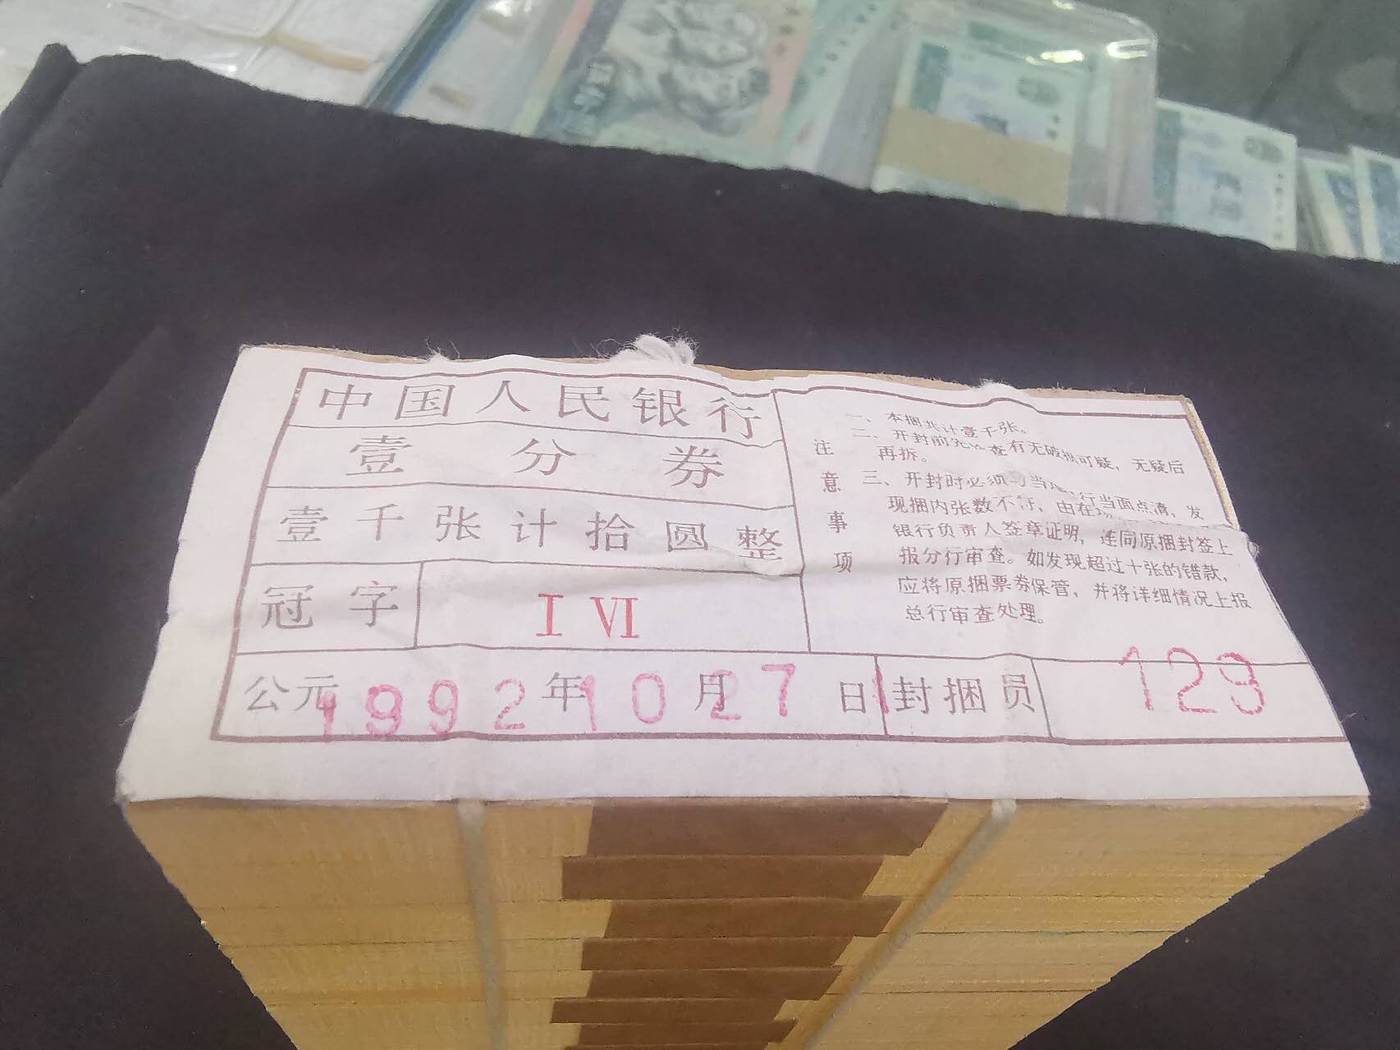 中国人民银行
壹分券
壹千张计拾圆整
冠字 I VI
公元1992年10月27日 封捆员 129
注意事项
一、本捆共计壹千张。
二、开封前 查有无破 可疑，无疑后
再拆。
三、开封时必须 当 行当面点清，发
现捆内张数不符，由在
银行负责人签章证明，连同原捆封签上
报分行审查。如发现超过十张的错款，
应将原捆票券保管，并将详细情况上报
总行审查处理。